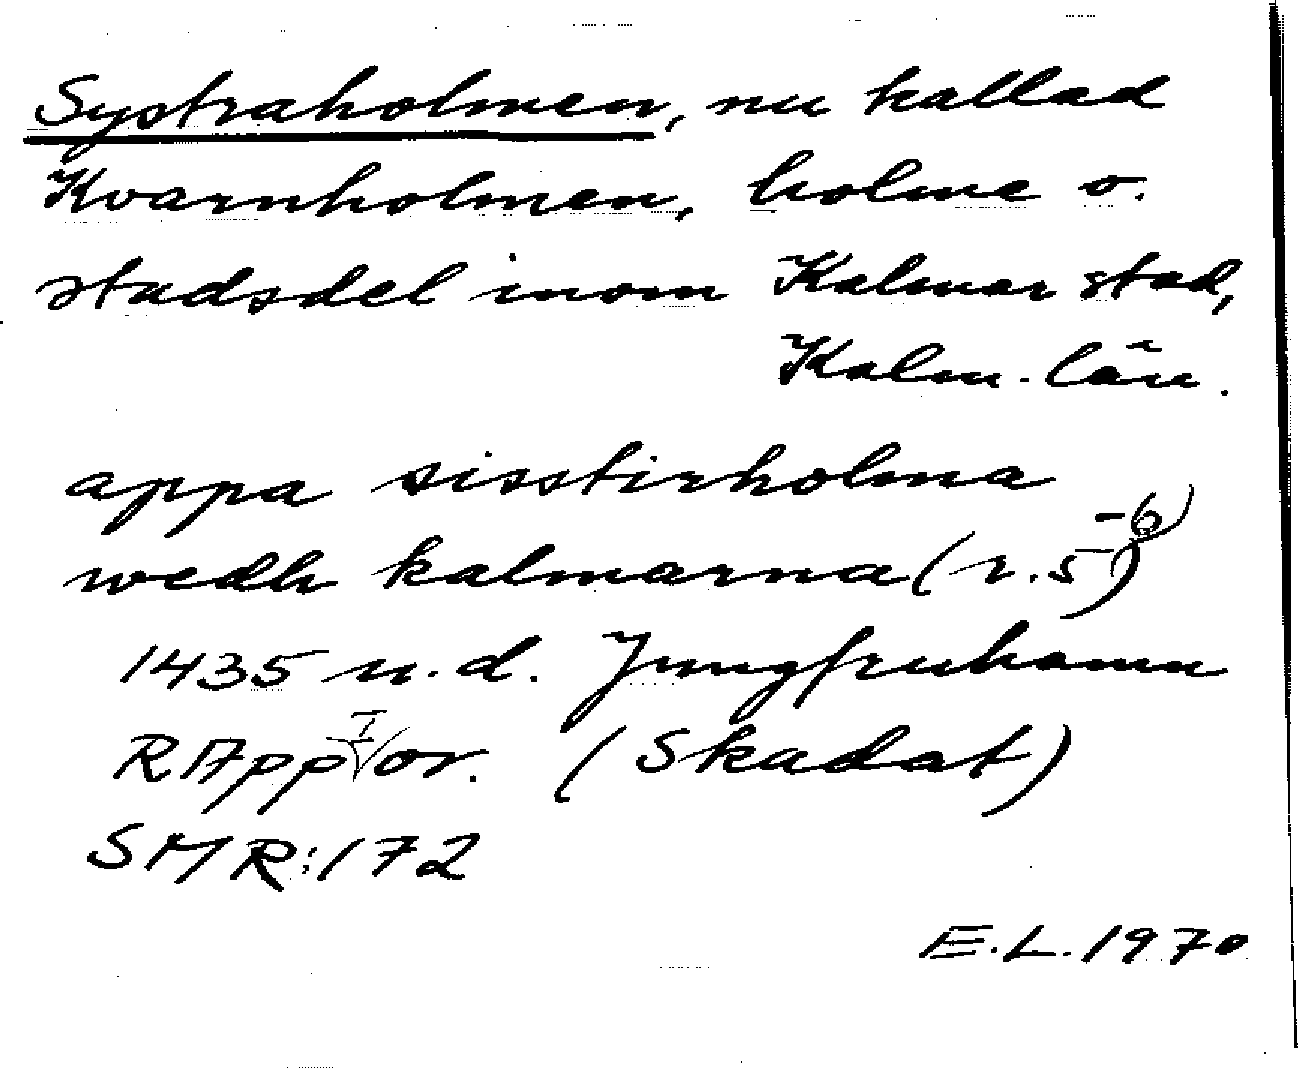 Systraholmen, nu kallad
Kvarnholmen, holme o.
stadsdel inom Kalmar stad,
Kalm. län.
appa sisstirholma
wedh kalmarna (r. 5-6)
1435 u.d. Jungfruhamn
RApp I or. (Skadat)
SMR:172
E.L. 1970